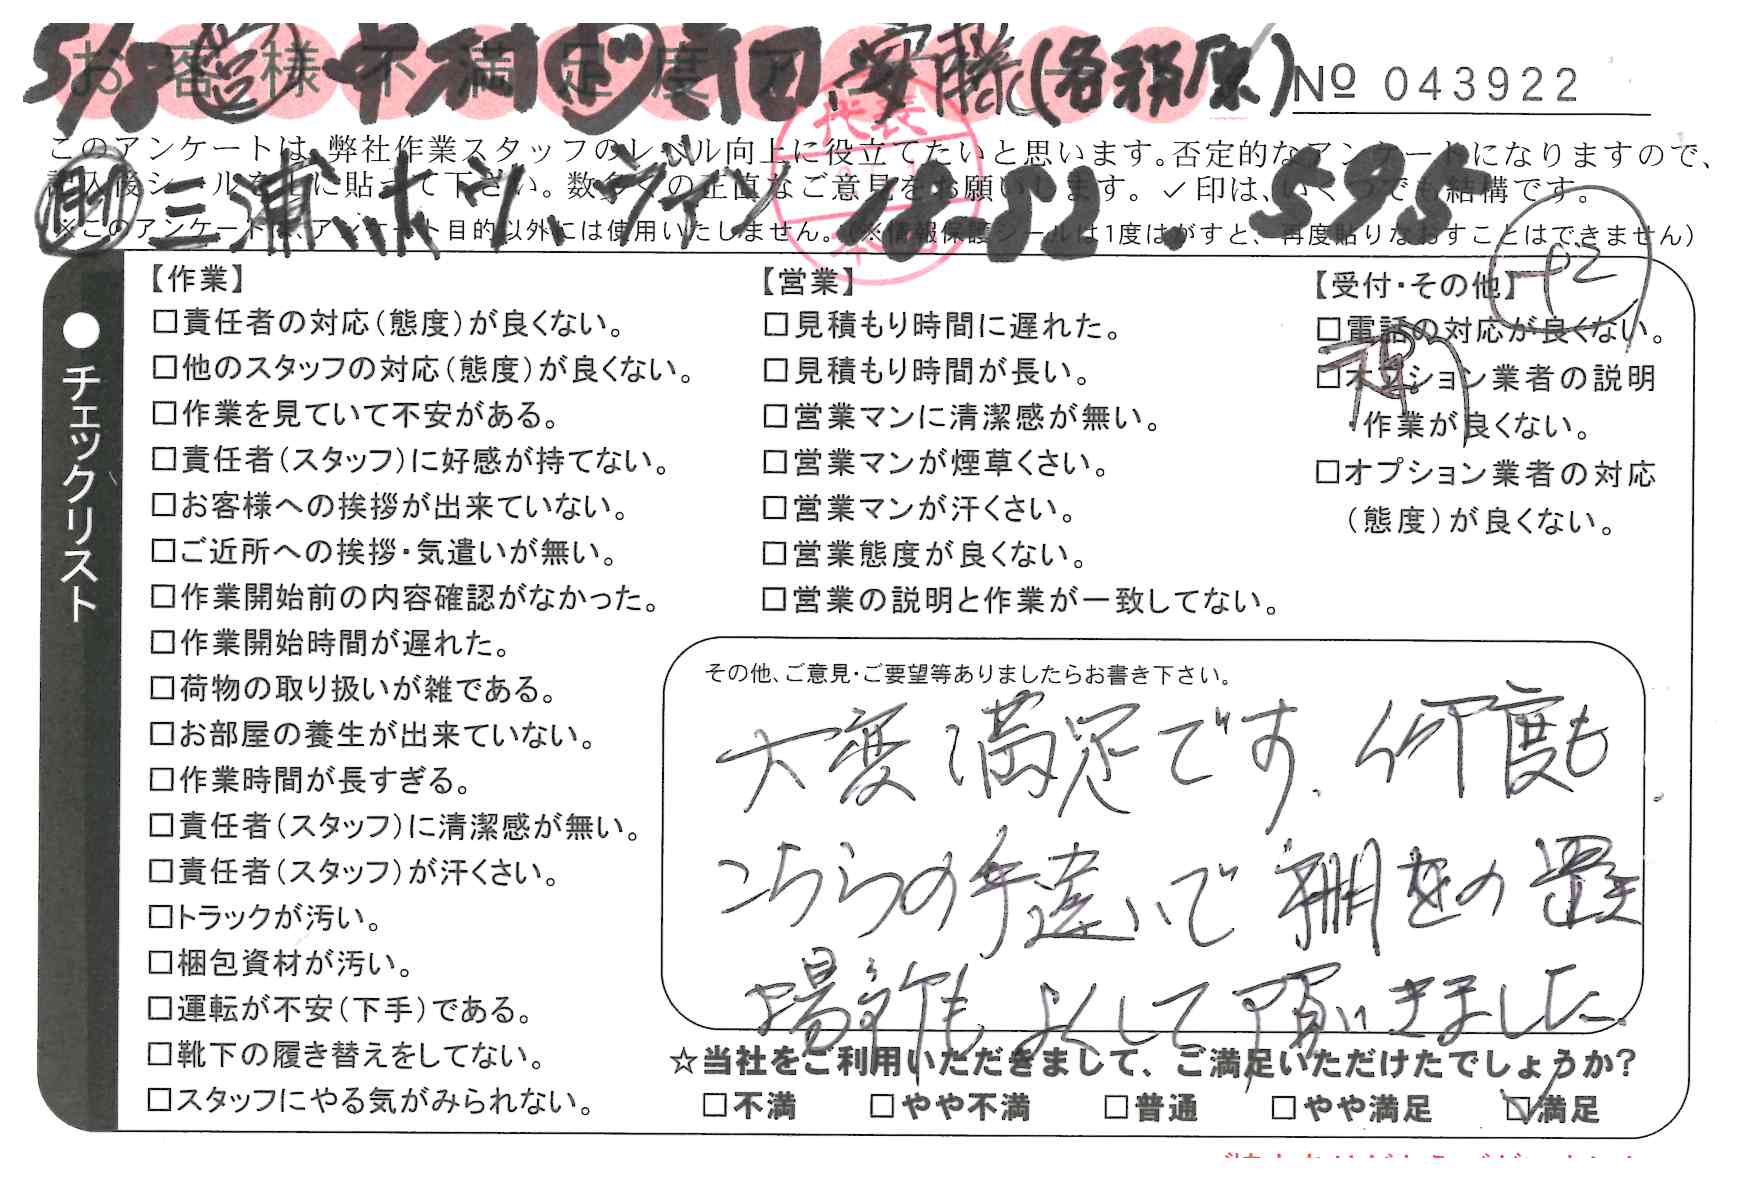 お客様不満足度ア
5/3 中村 前田 安藤(各務原)
№ 043922
このアンケートは、弊社作業スタッフのレベル向上に役立てたいと思います。否定的なアンケートになりますので、
記入後シールを上に貼って下さい。数多くの正直なご意見をお願いします。✓印は、いくつでも結構です。
※このアンケートは、アンケート目的以外には使用いたしません。(※情報保護シールは1度はがすと、再度貼りなおすことはできません)
三浦、ホソン、ディン
595
代表
+2
●チェックリスト
【作業】
□責任者の対応(態度)が良くない。
□他のスタッフの対応(態度)が良くない。
□作業を見ていて不安がある。
□責任者(スタッフ)に好感が持てない。
□お客様への挨拶が出来ていない。
□ご近所への挨拶・気遣いが無い。
□作業開始前の内容確認がなかった。
□作業開始時間が遅れた。
□荷物の取り扱いが雑である。
□お部屋の養生が出来ていない。
□作業時間が長すぎる。
□責任者(スタッフ)に清潔感が無い。
□責任者(スタッフ)が汗くさい。
□トラックが汚い。
□梱包資材が汚い。
□運転が不安(下手)である。
□靴下の履き替えをしてない。
□スタッフにやる気がみられない。
【営業】
□見積もり時間に遅れた。
□見積もり時間が長い。
□営業マンに清潔感が無い。
□営業マンが煙草くさい。
□営業マンが汗くさい。
□営業態度が良くない。
□営業の説明と作業が一致してない。
【受付・その他】
□電話の対応が良くない。
□オプション業者の説明
作業が良くない。
□オプション業者の対応
(態度)が良くない。
その他、ご意見・ご要望等ありましたらお書き下さい。
大変満足です。何度も
こちらの手違いで棚をの置き
場所もよくして頂いきました。
☆当社をご利用いただきまして、ご満足いただけたでしょうか?
□不満 □やや不満 □普通 □やや満足 ☑満足